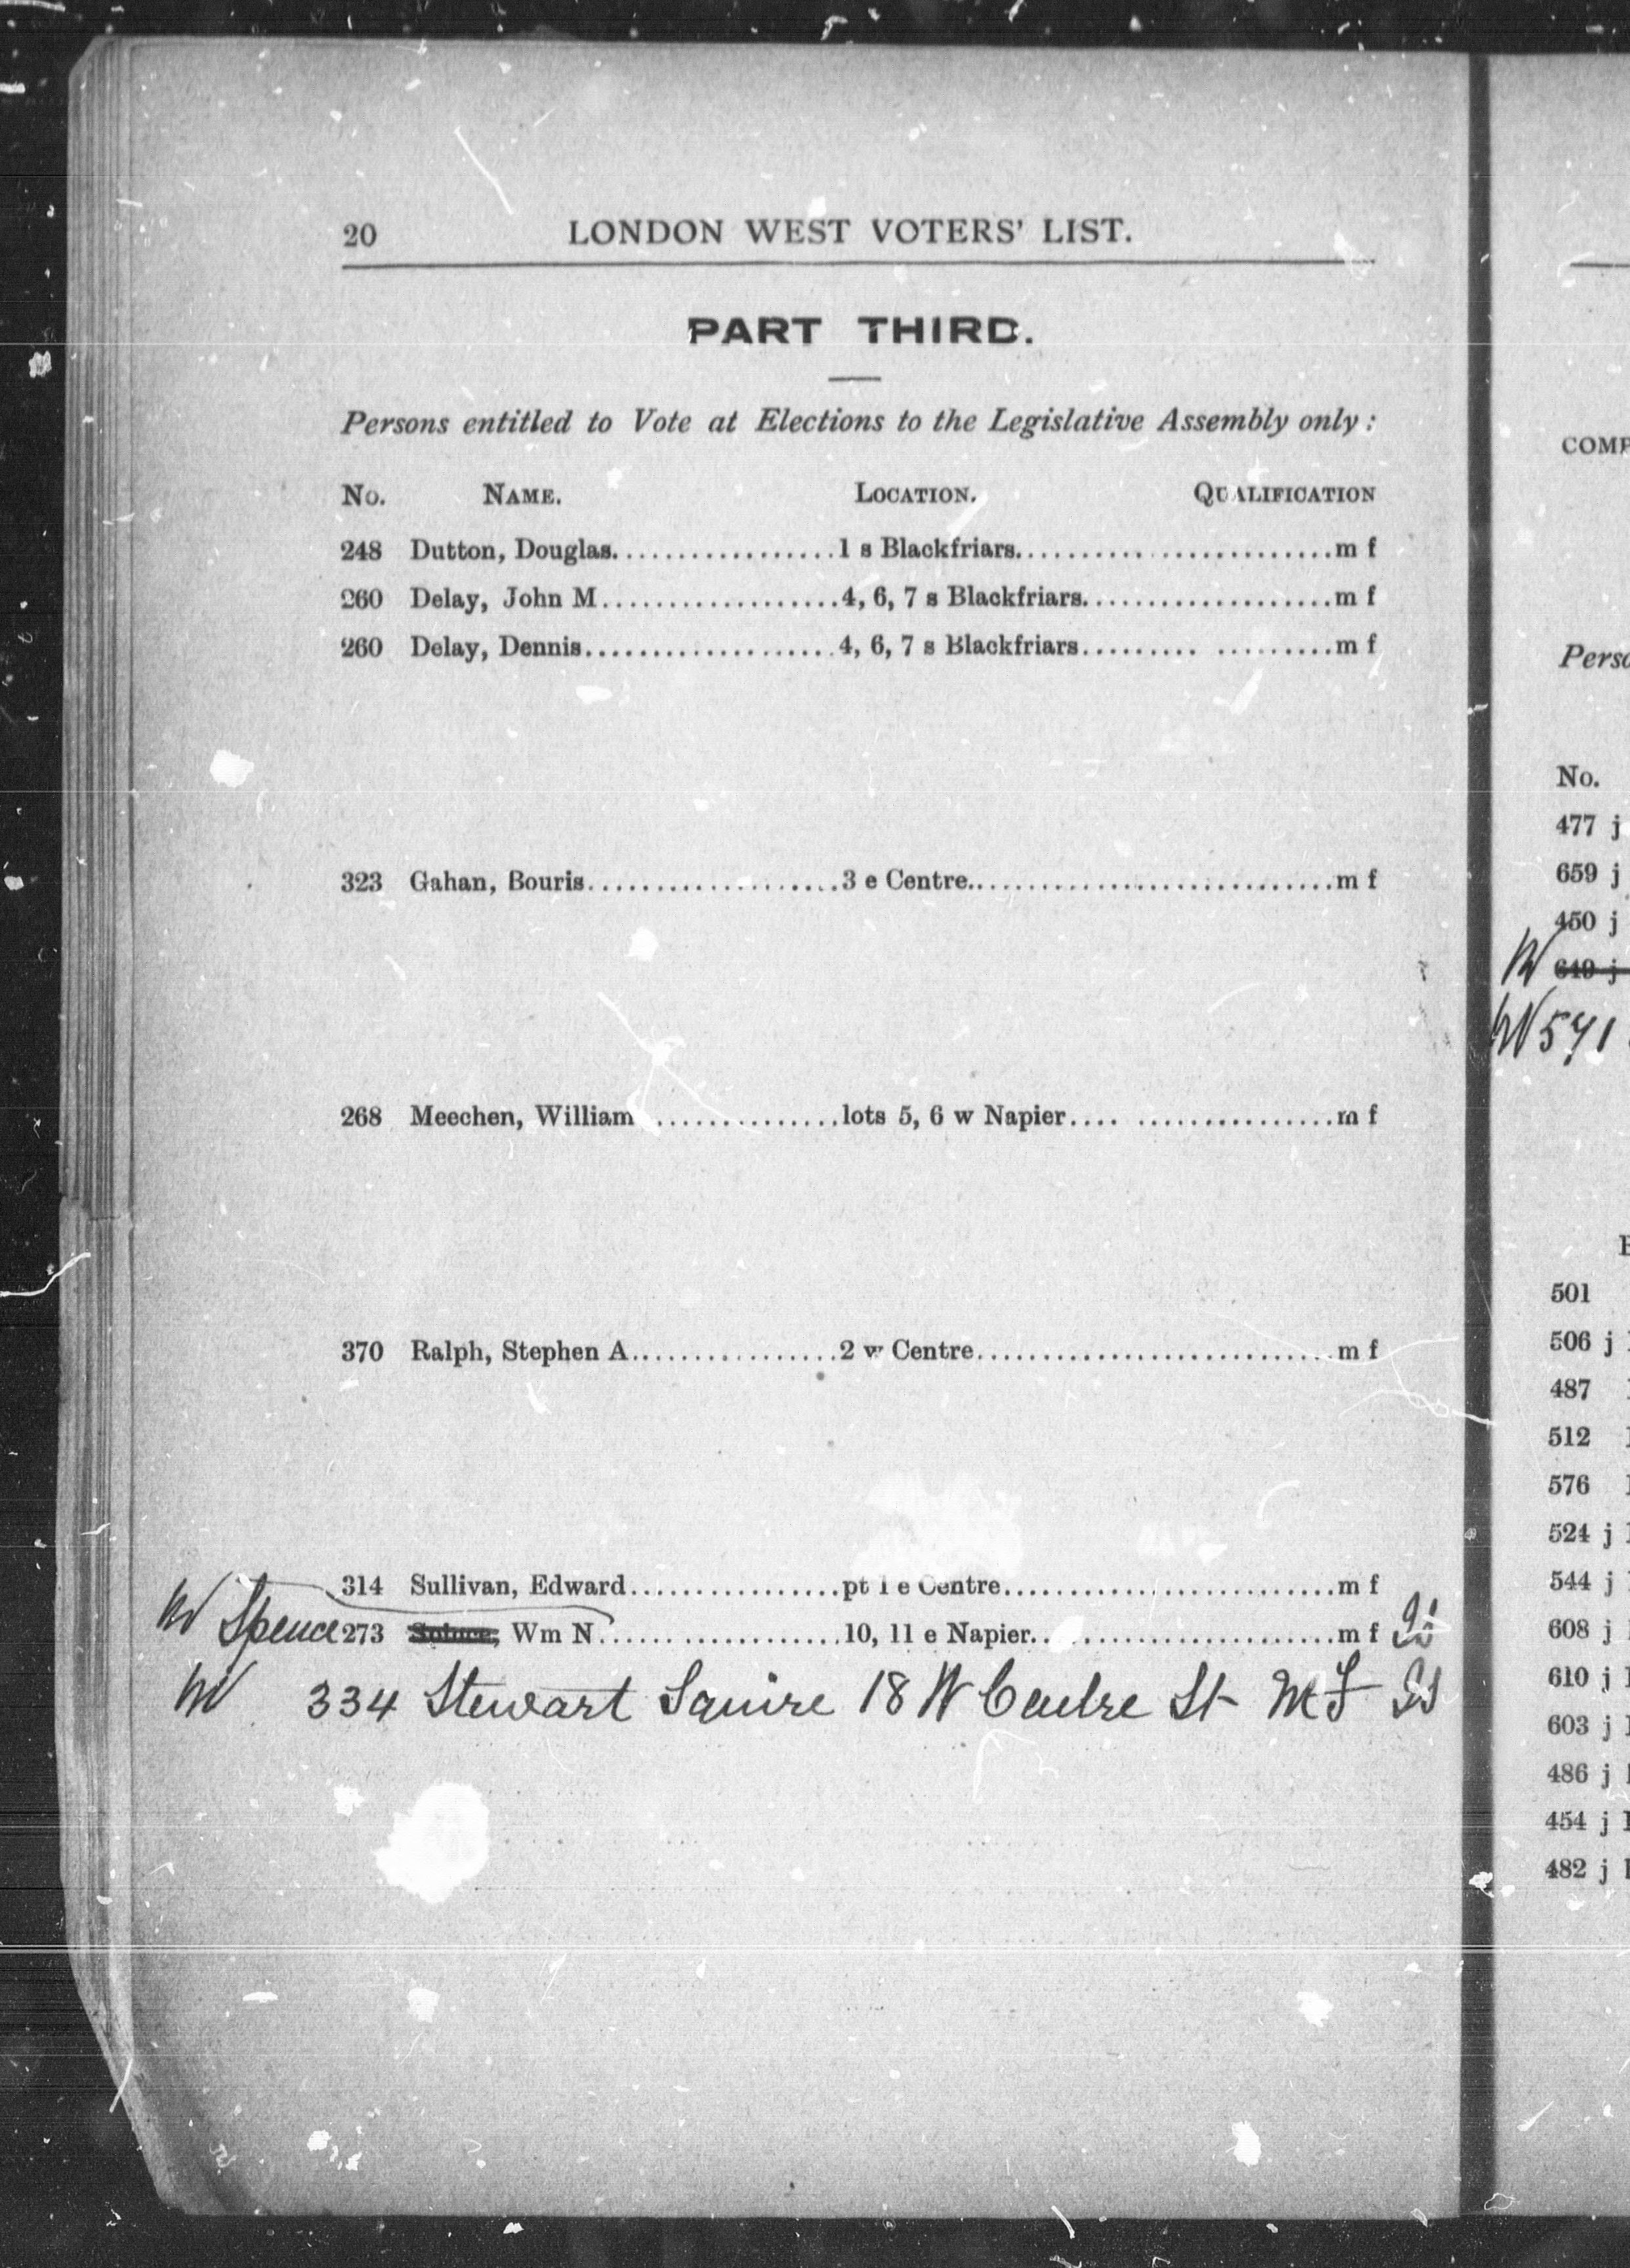 20 LONDON WEST VOTERS' LIST.
PART THIRD.
Persons entitled to Vote at Elections to the Legislative Assembly only :
No. NAME. LOCATION. QUALIFICATION
248 Dutton, Douglas.................1 s Blackfriars.......................m f
260 Delay, John M...................4, 6, 7 s Blackfriars...................m f
260 Delay, Dennis....................4, 6, 7 s Blackfriars......... .........m f
323 Gahan, Bouris....................3 e Centre............................m f
268 Meechen, William ..............lots 5, 6 w Napier.... ................m f
370 Ralph, Stephen A................2 w Centre...........................m f
314 Sullivan, Edward................pt 1 e Centre.........................m f
Spence 273 Wm N...................10, 11 e Napier.......................m f
334 Stewart Squire 18 W Centre St M F
COMP
Perso
No.
477 j
659 j
450 j
649 j
W 571
501
506 j
487
512
576
524 j
544 j
608 j
610 j
603 j
486 j
454 j
482 j